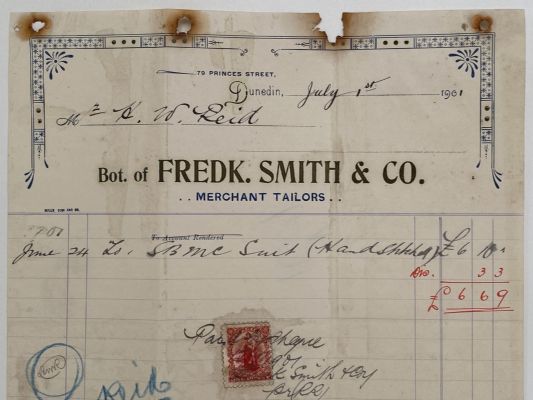 79 PRINCES STREET,
Dunedin, July 1st 1901
Mr H. W. Reid
Bot. of FREDK. SMITH & CO.
. . MERCHANT TAILORS . .
To Account Rendered
June 24 To, SBMC Suit (Hand stitched) £ 6 10
Dis. 3 3
£ 6 6 9
Paid
Smith & Co
Paid